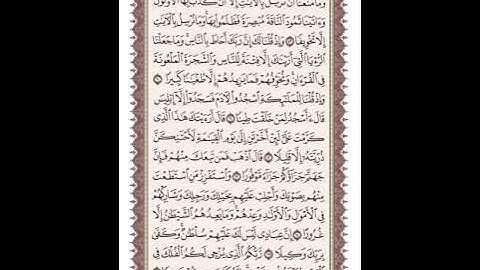 وَمَا مَنَعَنَا أَن نُّرْسِلَ بِالْآيَاتِ إِلَّا أَن كَذَّبَ بِهَا الْأَوَّلُونَ
وَءَاتَيْنَا ثَمُودَ النَّاقَةَ مُبْصِرَةً فَظَلَمُوا بِهَا وَمَا نُرْسِلُ بِالْآيَاتِ
إِلَّا تَخْوِيفًا ۝ وَإِذْ قُلْنَا لَكَ إِنَّ رَبَّكَ أَحَاطَ بِالنَّاسِ وَمَا جَعَلْنَا
الرُّءْيَا الَّتِي أَرَيْنَاكَ إِلَّا فِتْنَةً لِّلنَّاسِ وَالشَّجَرَةَ الْمَلْعُونَةَ
فِي الْقُرْءَانِ وَنُخَوِّفُهُمْ فَمَا يَزِيدُهُمْ إِلَّا طُغْيَانًا كَبِيرًا ۝
وَإِذْ قُلْنَا لِلْمَلَائِكَةِ اسْجُدُوا لِآدَمَ فَسَجَدُوا إِلَّا إِبْلِيسَ
قَالَ ءَأَسْجُدُ لِمَنْ خَلَقْتَ طِينًا ۝ قَالَ أَرَءَيْتَكَ هَٰذَا الَّذِي
كَرَّمْتَ عَلَيَّ لَئِنْ أَخَّرْتَنِ إِلَىٰ يَوْمِ الْقِيَامَةِ لَأَحْتَنِكَنَّ
ذُرِّيَّتَهُ إِلَّا قَلِيلًا ۝ قَالَ اذْهَبْ فَمَن تَبِعَكَ مِنْهُمْ فَإِنَّ
جَهَنَّمَ جَزَاؤُكُمْ جَزَاءً مَّوْفُورًا ۝ وَاسْتَفْزِزْ مَنِ اسْتَطَعْتَ
مِنْهُم بِصَوْتِكَ وَأَجْلِبْ عَلَيْهِم بِخَيْلِكَ وَرَجِلِكَ وَشَارِكْهُمْ
فِي الْأَمْوَالِ وَالْأَوْلَادِ وَعِدْهُمْ وَمَا يَعِدُهُمُ الشَّيْطَانُ إِلَّا
غُرُورًا ۝ إِنَّ عِبَادِي لَيْسَ لَكَ عَلَيْهِمْ سُلْطَانٌ وَكَفَىٰ
بِرَبِّكَ وَكِيلًا ۝ رَّبُّكُمُ الَّذِي يُزْجِي لَكُمُ الْفُلْكَ فِي